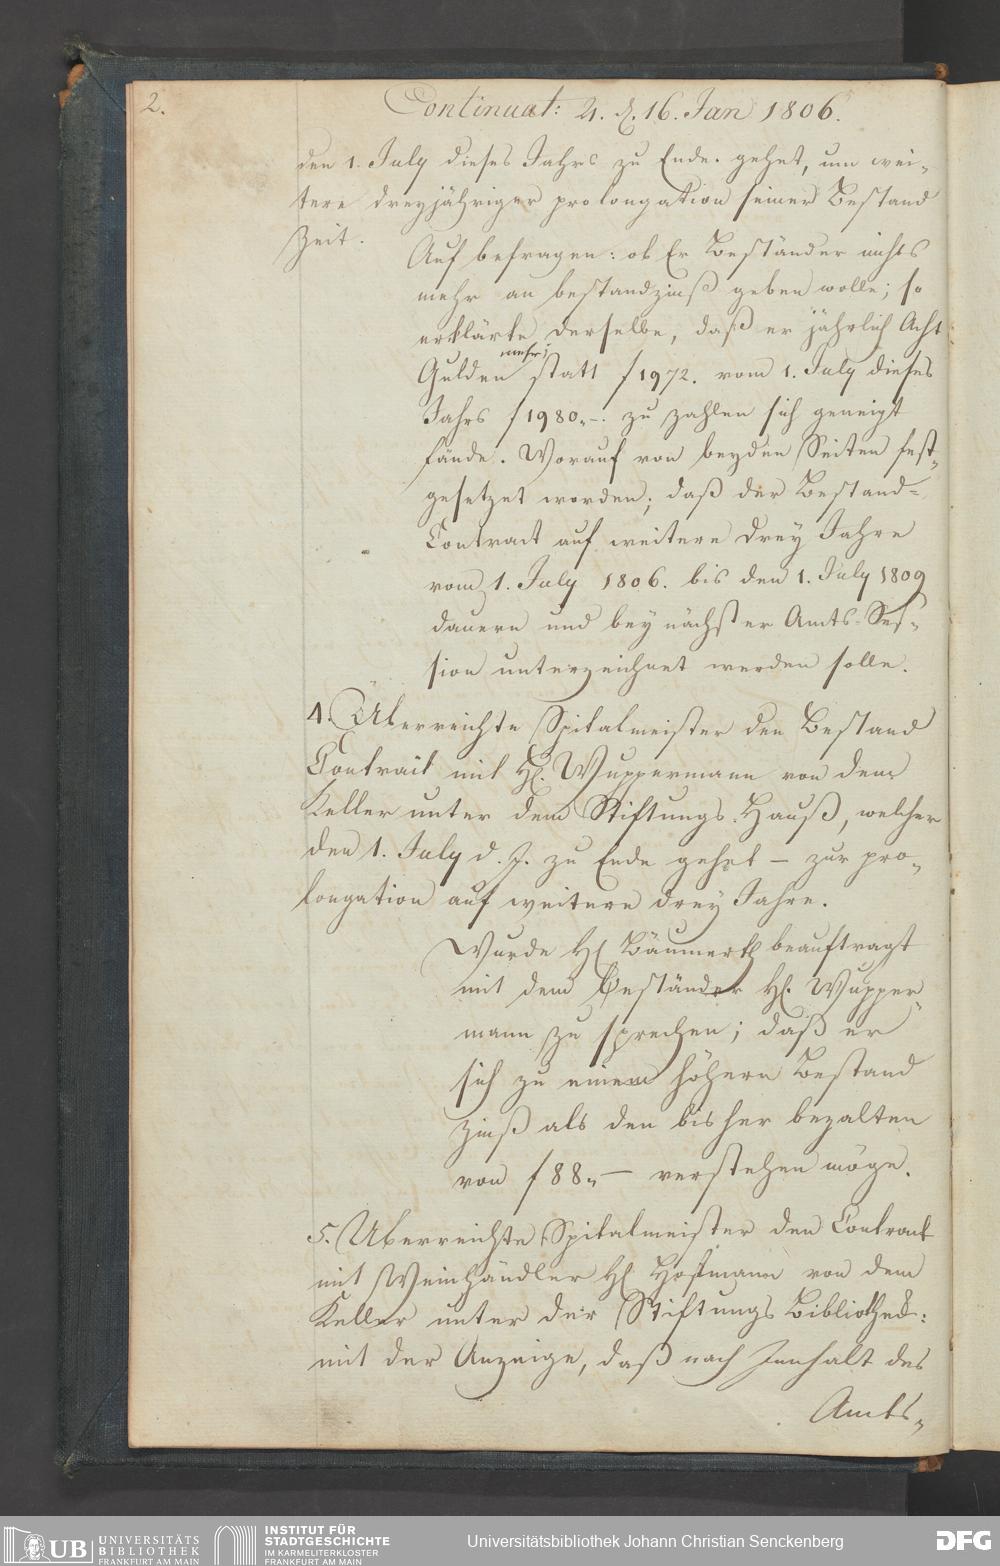 2.
Continuat: 4. d. 16. Jan 1806.
den 1. July dieses Jahrs zu Ende gehet, um wei-
tere dreyjähriger prolongation seiner Bestand
Zeit.
Auf befragen: ob Er Beständer nichts
mehr an bestandzinß geben wolle; so
erklärte derselbe, daß er jährlich Acht
mehr;
Gulden statt f 1972. vom 1. July dieses
Jahrs f 1980.-. zu zahlen sich geneigt
fände. Worauf von beyden Seiten fest-
gesetzet worden; daß der Bestand-
Contract auf weitere drey Jahre
vom 1. July 1806. bis den 1. July 1809
dauern und bey nächster Amts-Ses-
sion unterzeichnet werden solle.
4. Überreichte Spitalmeister den Bestand
Contract mit H. Wuppermann von dem
Keller unter dem Stiftungs-Hauß, welcher
den 1. July d. J. zu Ende gehet – zur pro-
longation auf weitere drey Jahre.
Wurde H. Bäumerth beauftragt
mit dem Beständer H. Wupper-
mann zu sprechen; daß er
sich zu einem höhern Bestand
zinß als den bisher bezalten
von f 88.– verstehen möge.
5. Überreichte Spitalmeister den Contract
mit Weinhändler H. Hoffmann von dem
Keller unter der Stiftungs Bibliotheck:
mit der Anzeige, daß nach Innhalt des
Amts-
UB UNIVERSITÄTS
BIBLIOTHEK
FRANKFURT AM MAIN
INSTITUT FÜR
STADTGESCHICHTE
IM KARMELITERKLOSTER
FRANKFURT AM MAIN
Universitätsbibliothek Johann Christian Senckenberg
DFG